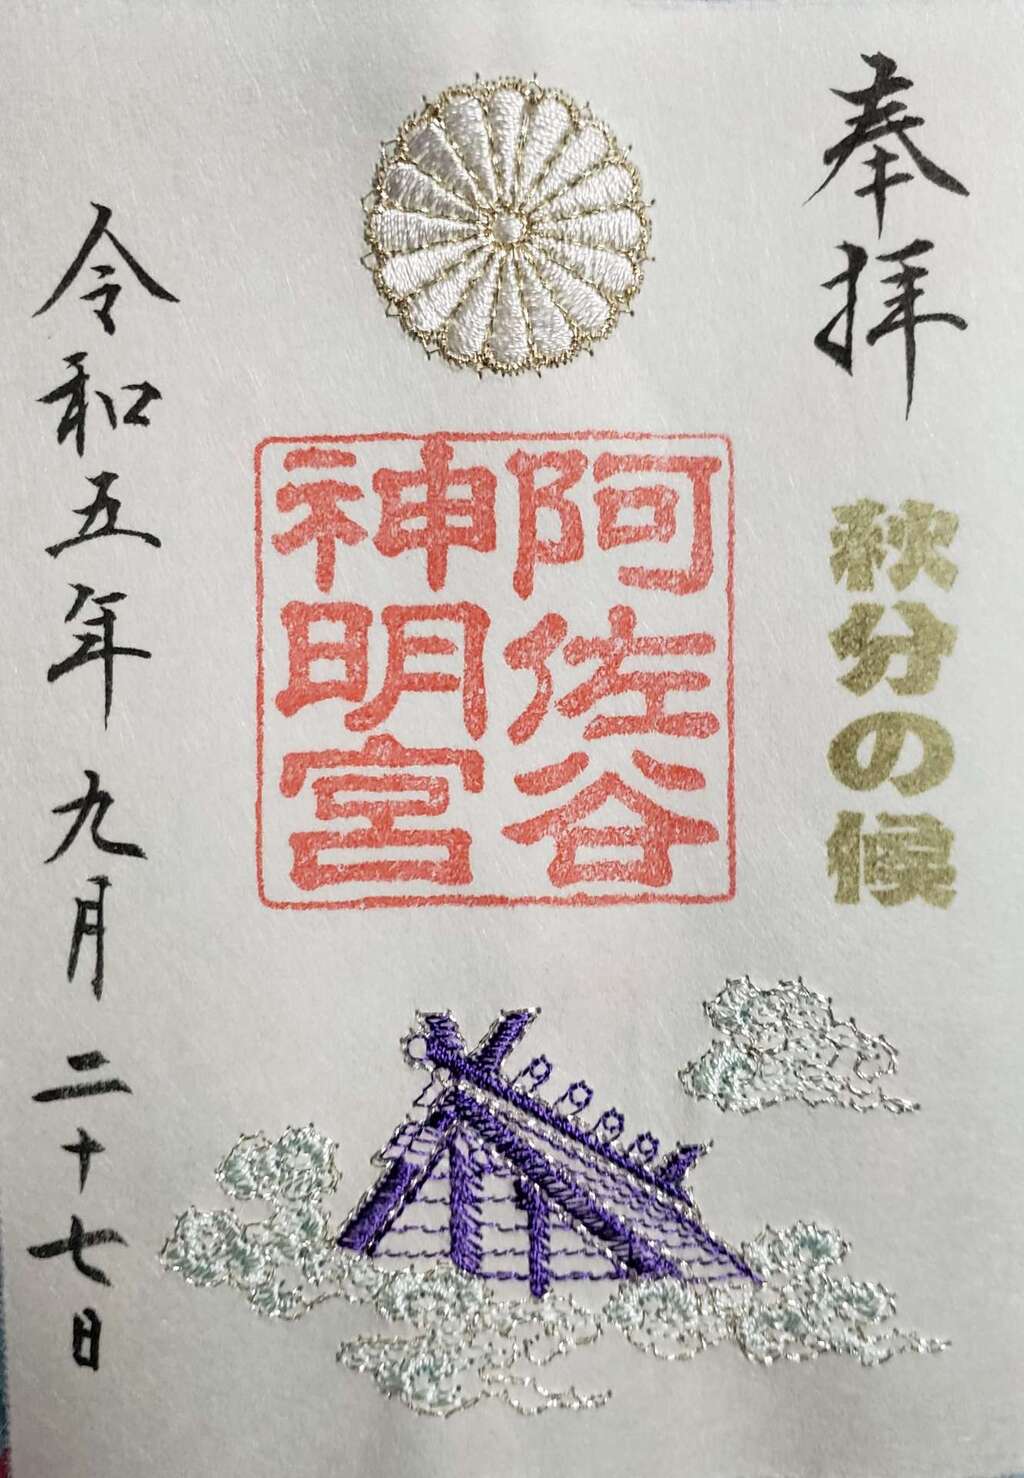 奉拝
秋分の候
阿佐谷
神明宮
令和五年九月二十七日